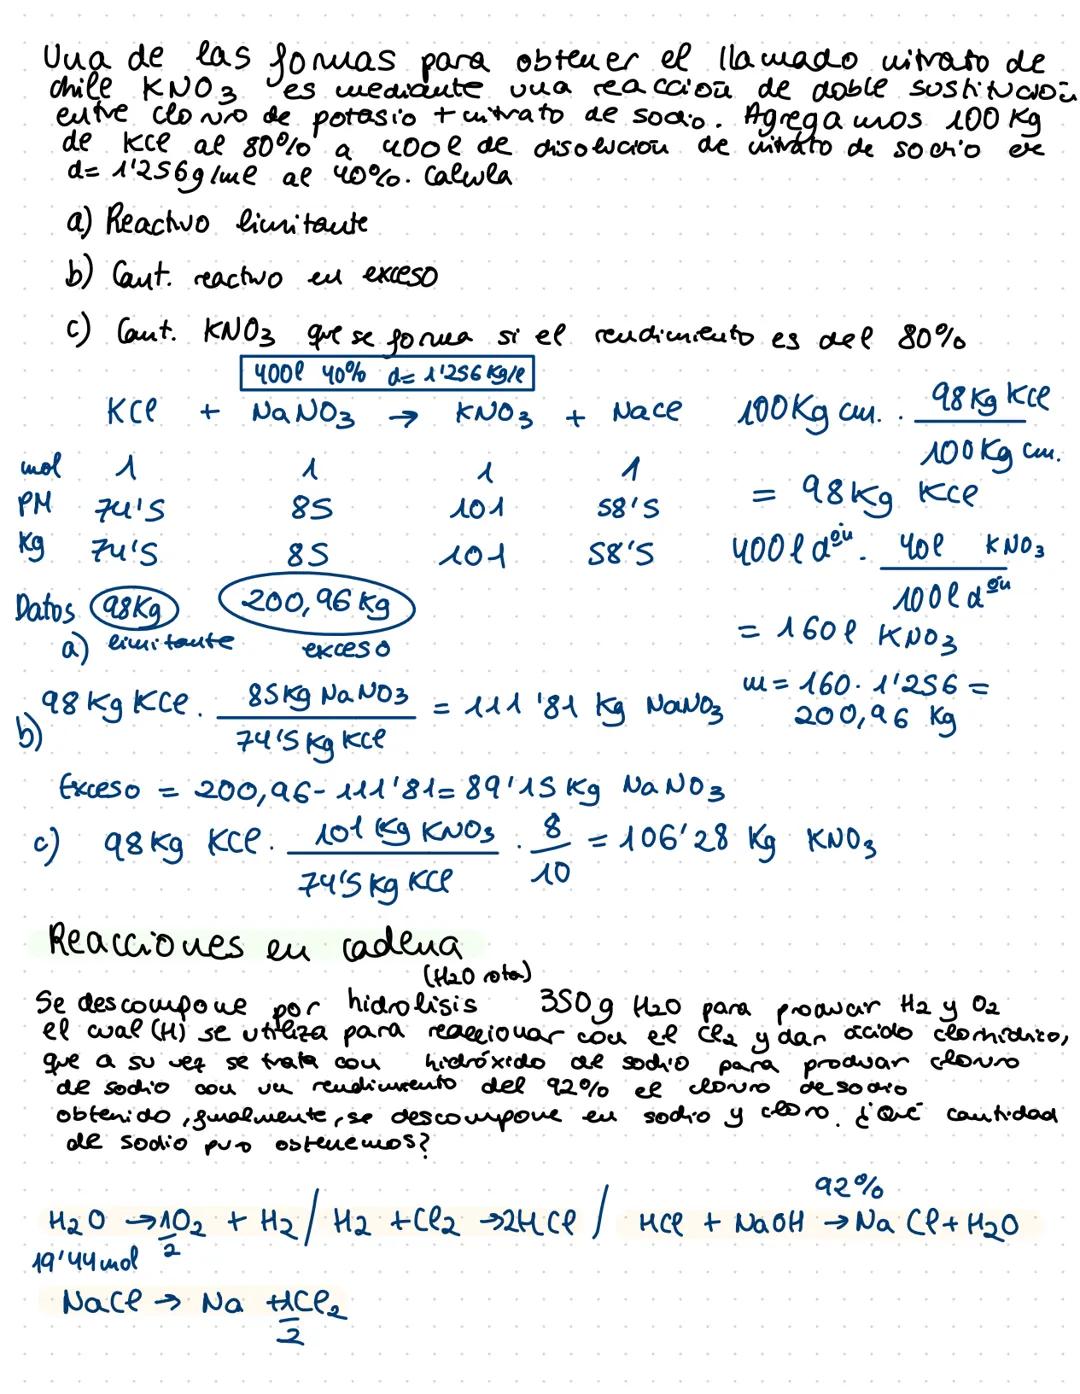 Una de las formas para obtener el llamado nitrato de
chile KNO3 es mediante una reacción de doble sustitución
entre cloruro de potasio + nitrato de sodio. Agregamos 100 Kg
de KCl al 80% a 400l de disolución de nitrato de sodio de
d= 1'256g/ml al 40%. Calcula
a) Reactivo limitante
b) Cant. reactivo en exceso
c) Cant. KNO3 que se forma si el rendimiento es del 80%
400l 40% d= 1'256 Kg/l
KCl + NaNO3 → KNO3 + NaCl
mol 1 1 1 1
PM 74'5 85 101 58'5
Kg 74'5 85 101 58'5
Datos 98Kg 200,96 Kg
a) limitante exceso
100Kg cm. · 98 Kg KCl / 100 Kg cm.
= 98Kg KCl
400l dºón · 40l KNO3 / 100l dºón
= 160l KNO3
m = 160 · 1'256 =
200,96 Kg
b) 98 Kg KCl · 85Kg NaNO3 / 74'5 Kg KCl = 111'81 Kg NaNO3
Exceso = 200,96 - 111'81 = 89'15 Kg NaNO3
c) 98Kg KCl · 101 Kg KNO3 / 74'5 Kg KCl · 8/10 = 106'28 Kg KNO3
Reacciones en cadena
(H2O rota)
Se descompone por hidrolisis 350g H2O para producir H2 y O2
el cual (H) se utiliza para reaccionar con el Cl2 y dar ácido clorhídrico,
que a su vez se trata con hidróxido de sodio para producir cloruro
de sodio con un rendimiento del 92% el cloruro de sodio
obtenido, igualmente, se descompone en sodio y cloro. ¿Qué cantidad
de sodio puro obtenemos?
92%
H2O → 1/2 O2 + H2 / H2 + Cl2 → 2HCl / HCl + NaOH → NaCl + H2O
19'44 mol
NaCl → Na + 1/2 Cl2